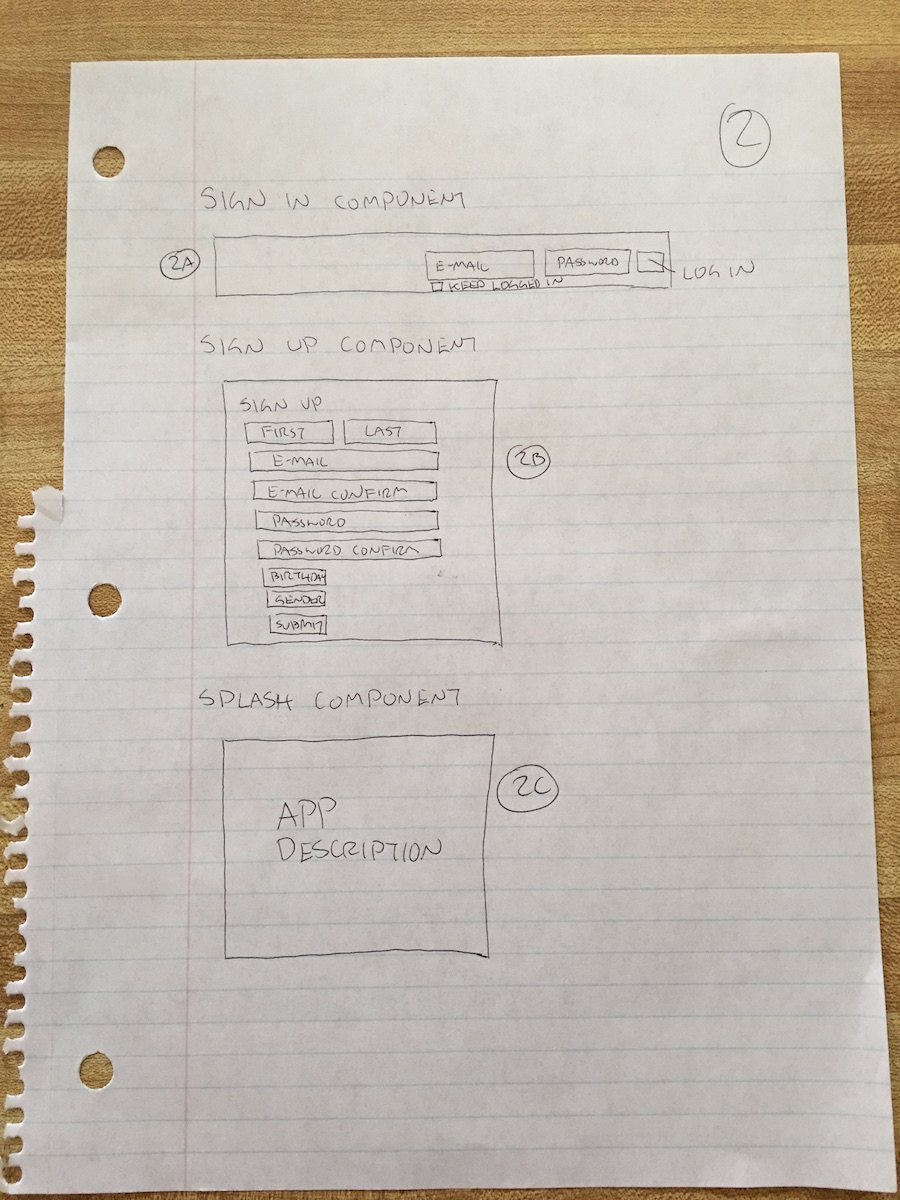 2
SIGN IN COMPONENT
2A
E-MAIL PASSWORD
LOG IN
KEEP LOGGED IN
SIGN UP COMPONENT
SIGN UP
FIRST LAST
2B
E-MAIL
E-MAIL CONFIRM
PASSWORD
PASSWORD CONFIRM
BIRTHDAY
GENDER
SUBMIT
SPLASH COMPONENT
2C
APP
DESCRIPTION